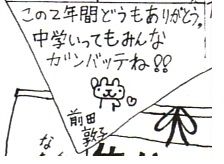 この2年間どうもありがとう。
中学いってもみんな
ガンバッテね!!
前田
敦子